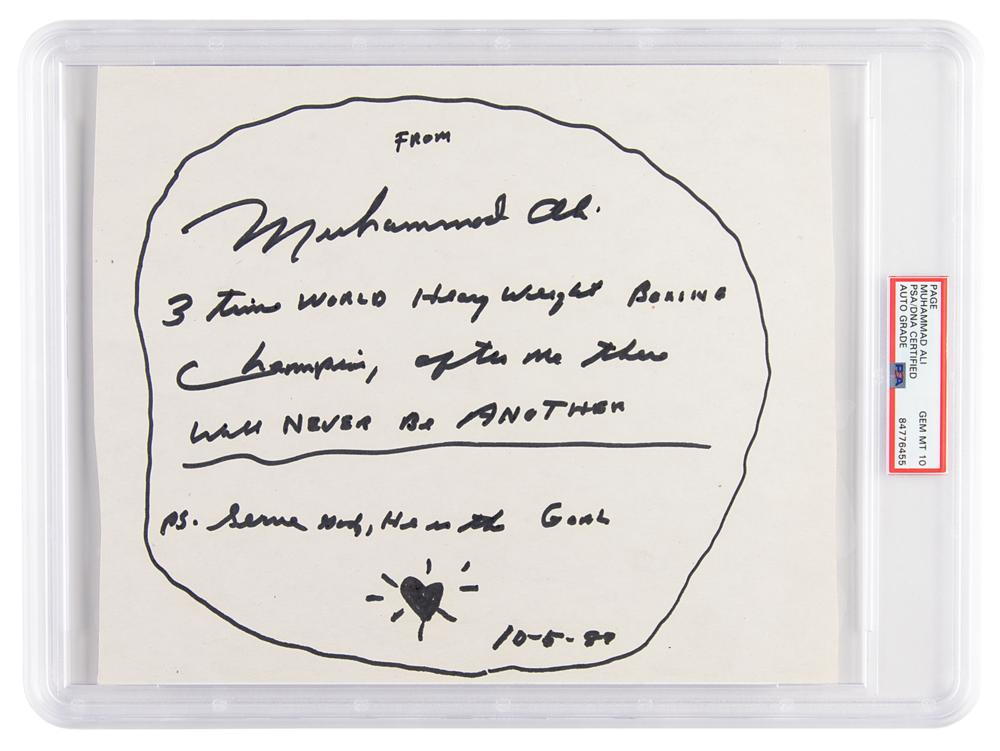 FROM
Muhammad Ali.
3 time WORLD Heavy Weight BOXING
Champion, after me there
Will NEVER Be ANOTHER
PS. Serve God, He is the GOAL
10-5-89
PAGE
MUHAMMAD ALI
PSA/DNA CERTIFIED
AUTO GRADE
GEM MT 10
84776455
PSA